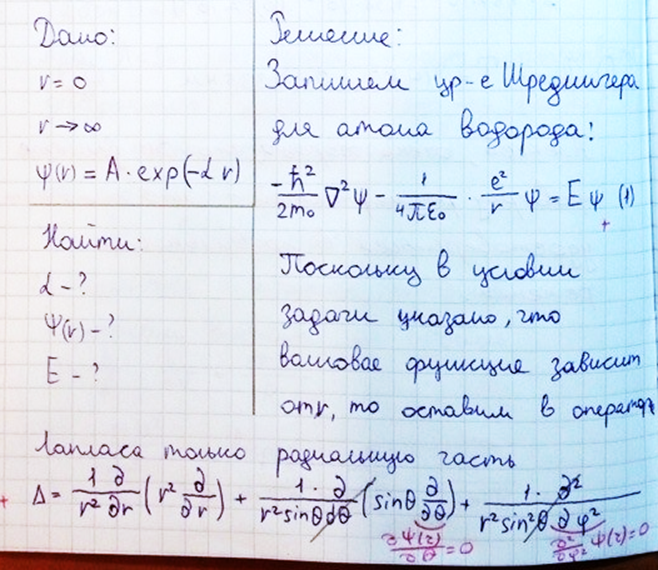 Дано:
r = 0
r → ∞
ψ(r) = A · exp(-α r)
Найти:
α - ?
Ψ(r) - ?
E - ?
Решение:
Запишем ур-е Шредингера
для атома водорода:
-ħ²/2m₀ ∇²ψ - 1/4πε₀ · e²/r ψ = E ψ (1)
+
Поскольку в условии
задачи указано, что
волновая функция зависит
от r, то оставим в операторе
Лапласа только радиальную часть
+ Δ = 1/r² ∂/∂r (r² ∂/∂r) + 1·∂/r² sinθ ∂θ (sinθ ∂/∂θ) + 1·∂²/r² sin²θ ∂φ²
∂Ψ(r)/∂θ = 0 ∂²/∂φ² Ψ(r) = 0